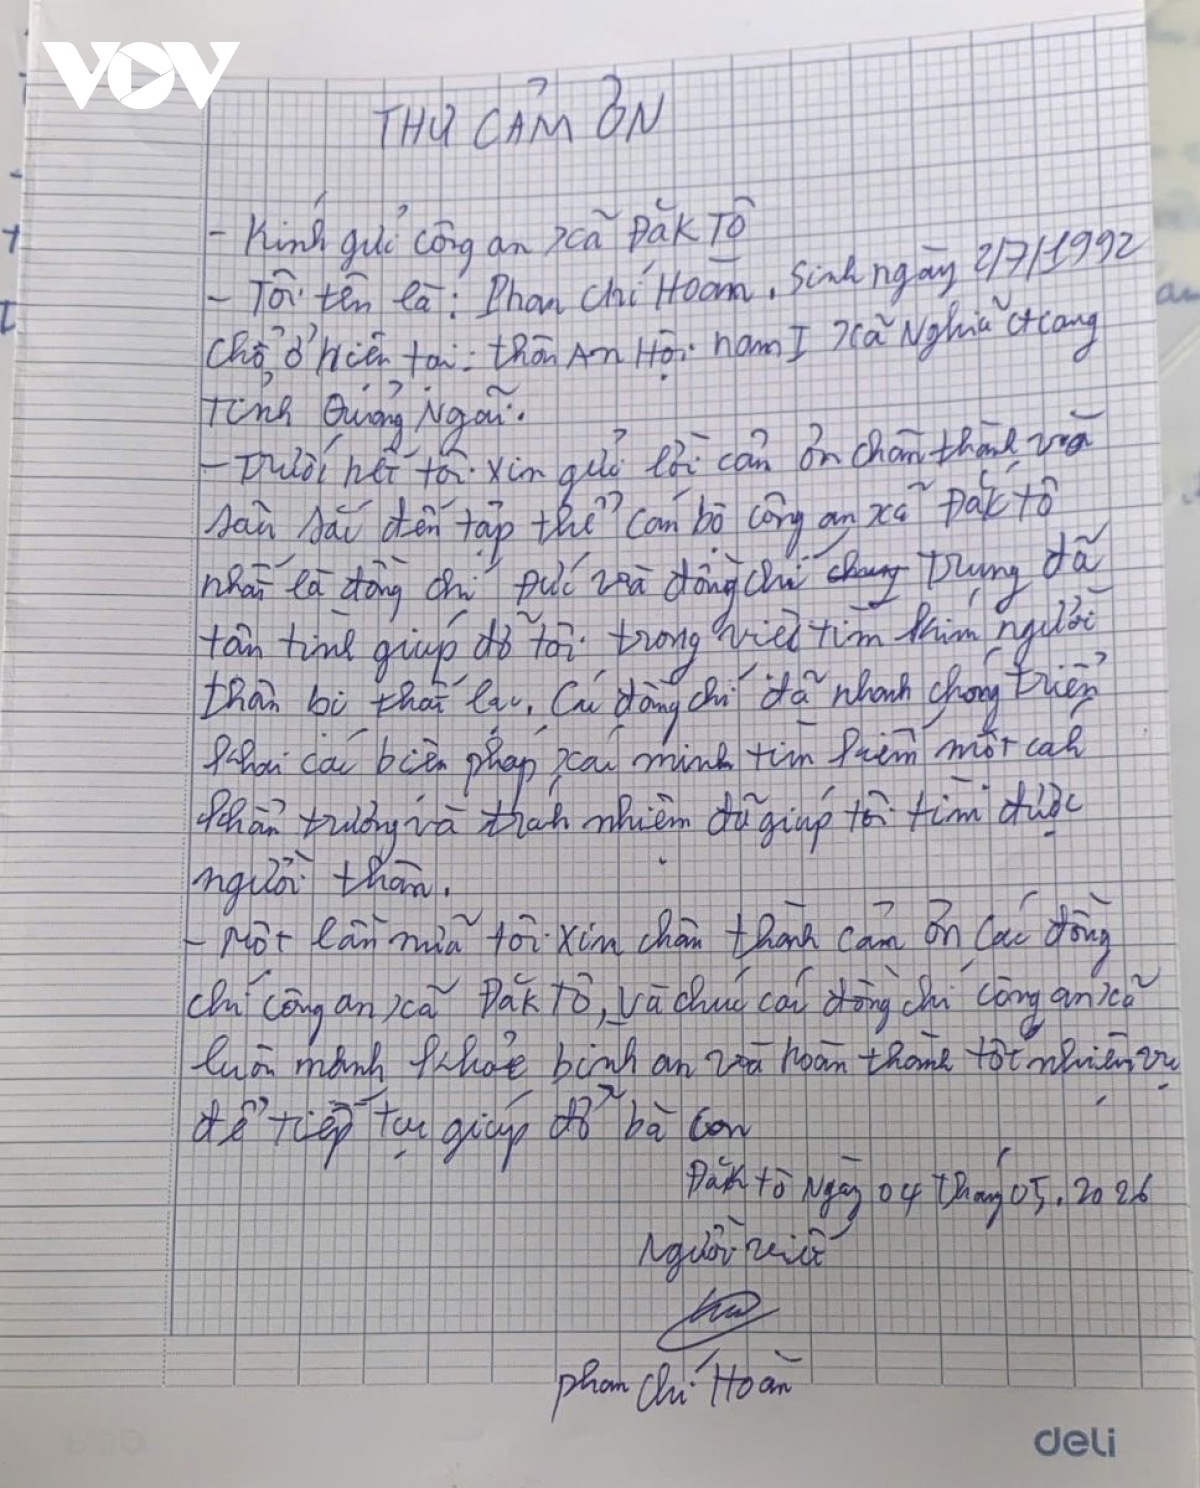 VOV
THƯ CẢM ƠN
- Kính gửi công an xã Đăk Tô
- Tôi tên là: Phan Chí Hoàn. Sinh ngày 2/7/1992
chỗ ở hiện tại: thôn An Hội nam I xã Nghĩa Giang
Tỉnh Quảng Ngãi.
- Trước hết tôi xin gửi lời cảm ơn chân thành và
sâu sắc đến tập thể cán bộ công an xã Đăk Tô
nhất là đồng chí Đức và đồng chí chung Trung đã
tận tình giúp đỡ tôi trong việc tìm kiếm người
thân bị thất lạc. Các đồng chí đã nhanh chóng triển
khai các biện pháp xác minh tìm kiếm một cách
khẩn trương và trách nhiệm đã giúp tôi tìm được
người thân.
- Một lần nữa tôi xin chân thành cảm ơn các đồng
chí công an xã Đăk Tô, và chúc các đồng chí công an xã
luôn mạnh khỏe bình an và hoàn thành tốt nhiệm vụ
để tiếp tục giúp đỡ bà con
Đăk tô Ngày 04 Tháng 05. 2026
Người viết
Phan Chí Hoàn
deli